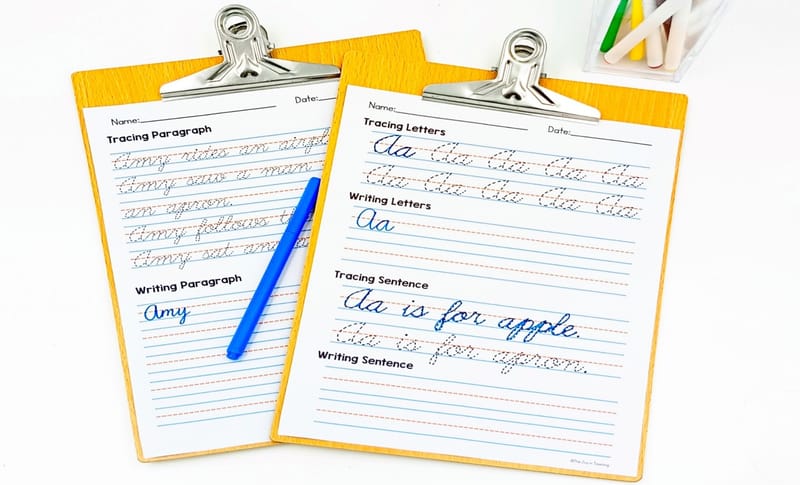 Name: Date:
Tracing Paragraph
Amy rides an airpl
Amy saw a man
an apron.
Amy follows
Amy sat
Writing Paragraph
Amy
Name: Date:
Tracing Letters
Aa Aa Aa Aa Aa
Aa Aa Aa Aa Aa
Writing Letters
Aa
Tracing Sentence
Aa is for apple.
Aa is for apron.
Writing Sentence